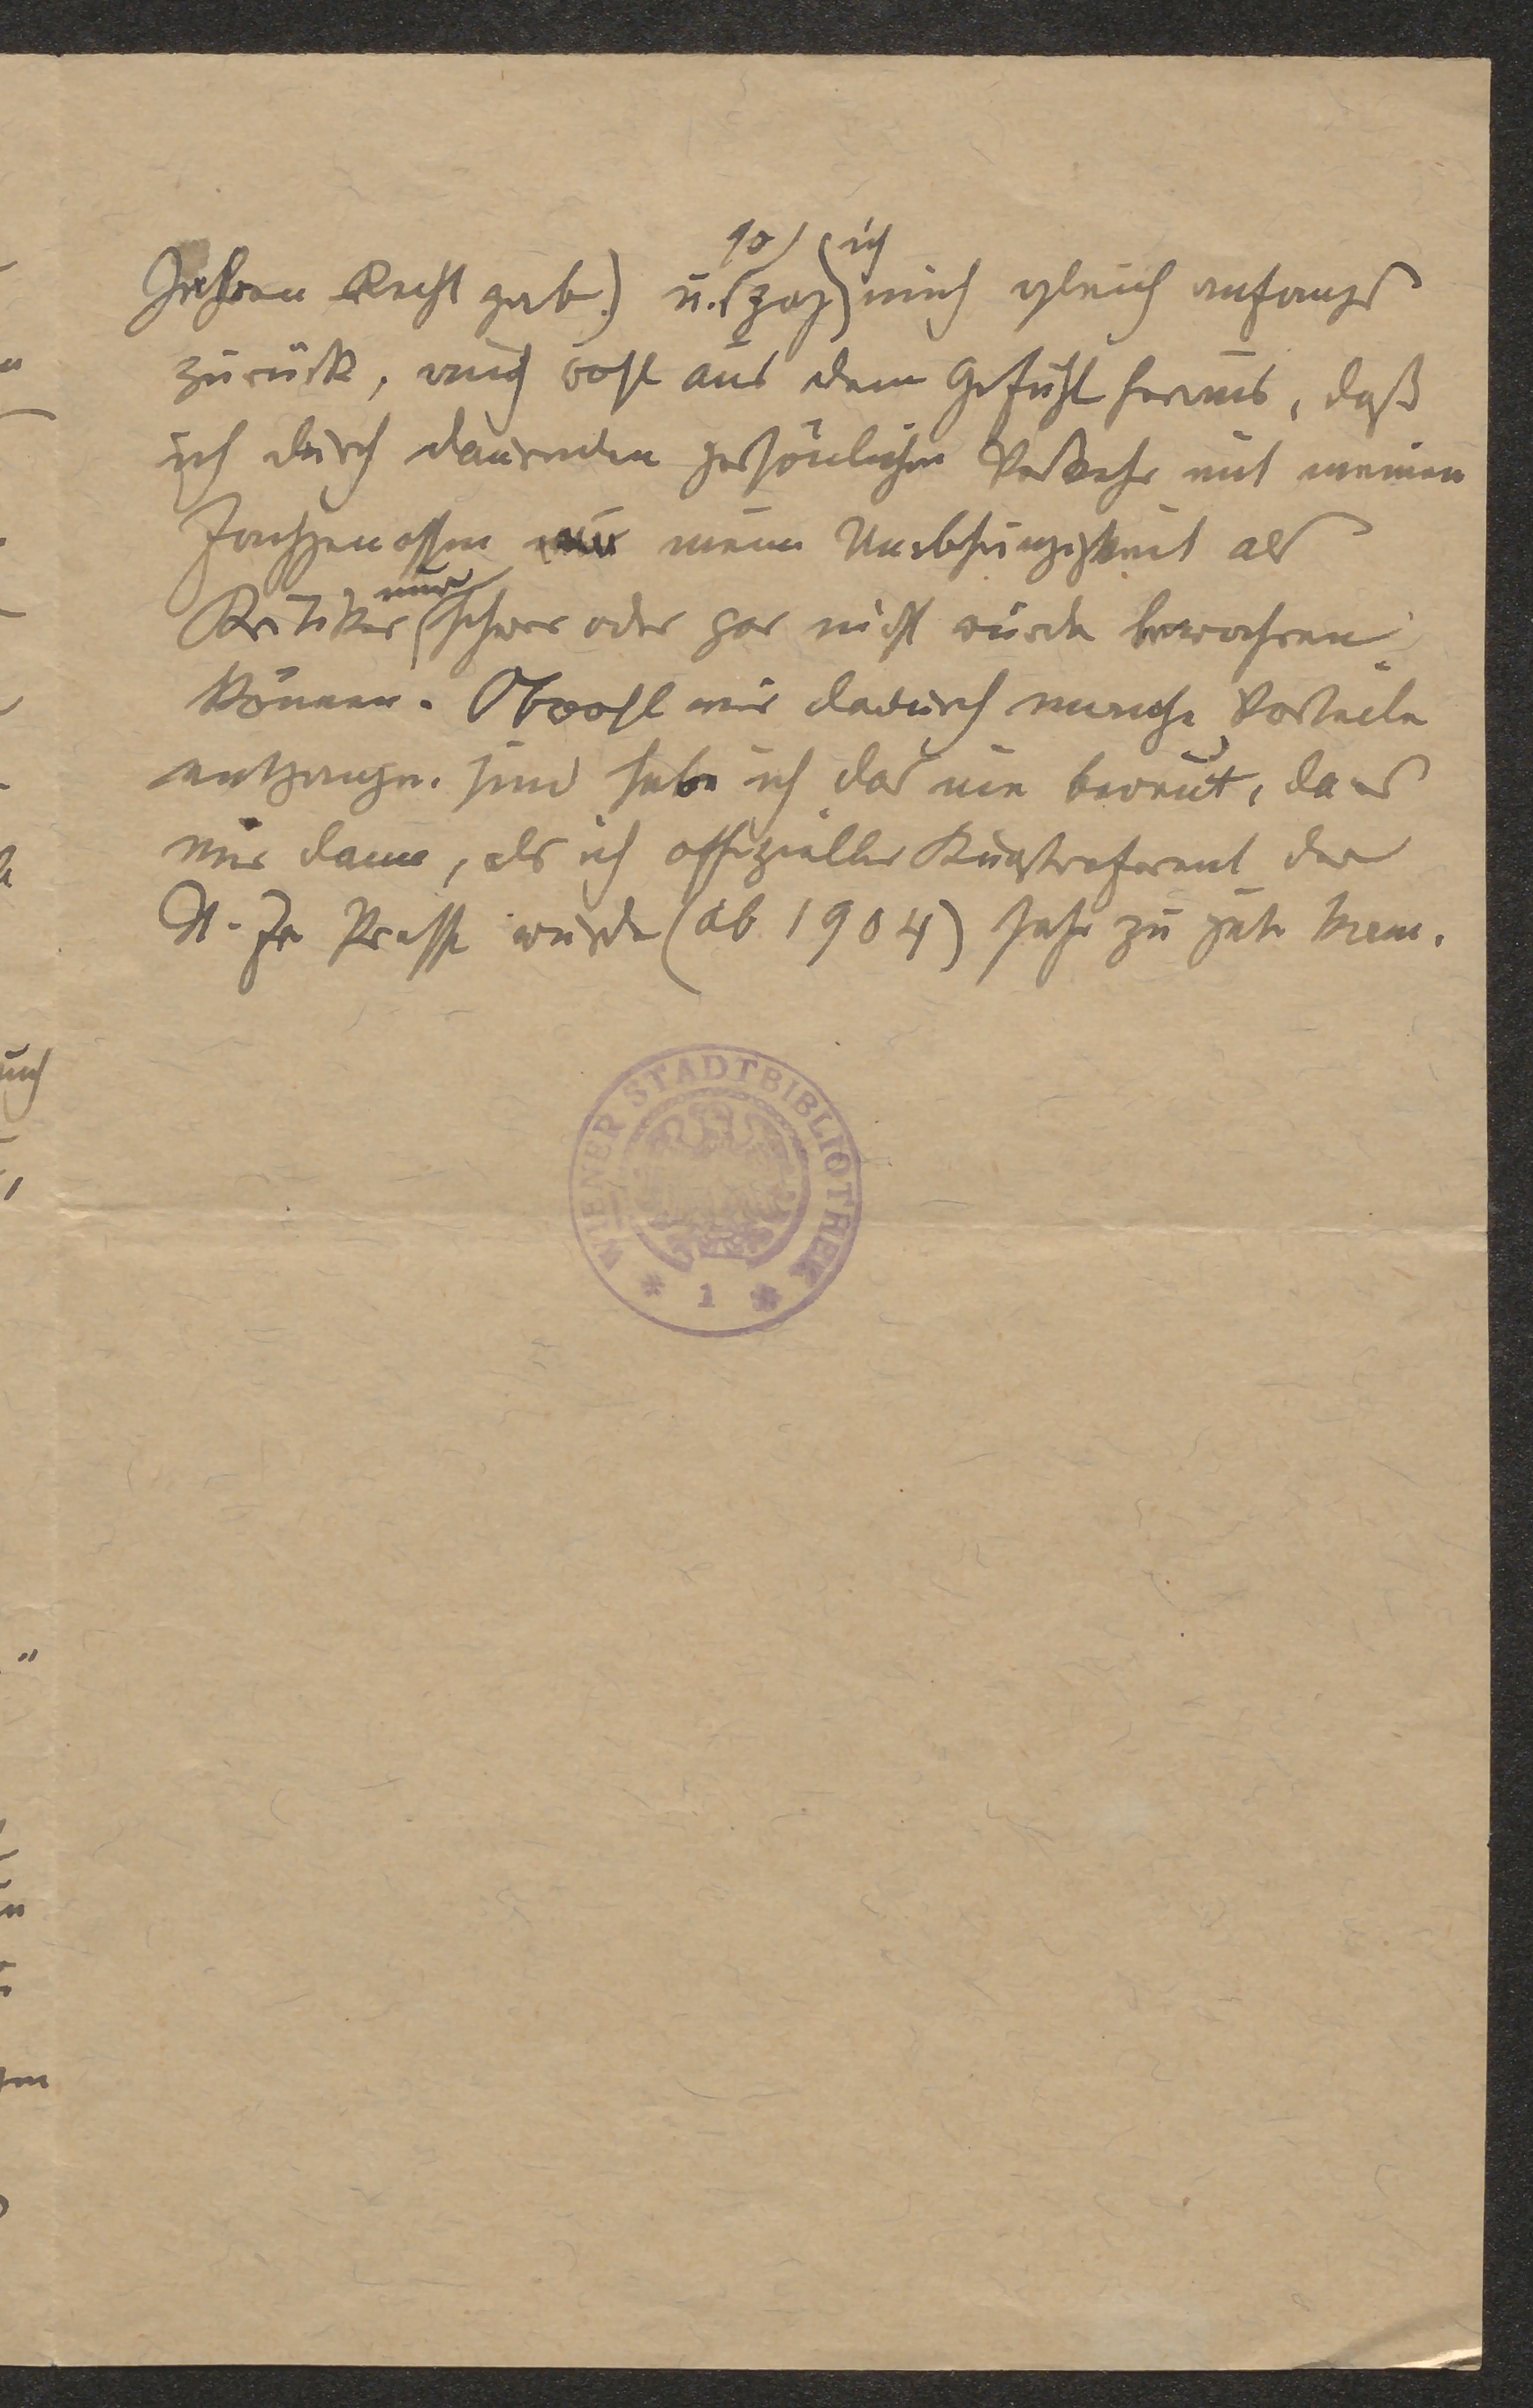 Jahren Recht gab.) u. so zog ich mich gleich anfangs
zurück, auch wohl aus dem Gefühl heraus, daß
ich durch dauernden persönlichen Verkehr mit meinen
Fachgenossen meine Unabhängigkeit als
Kritiker nur schwer oder gar nicht würde bewahren
können. Obwohl mir dadurch manche Vorteile
entgangen sind habe ich das nie bereut, da es
mir dann, als ich offizieller Kunstreferent der
N. Fr Presse wurde (ab 1904) sehr zu gute kam.
WIENER STADTBIBLIOTHEK
* 1 *